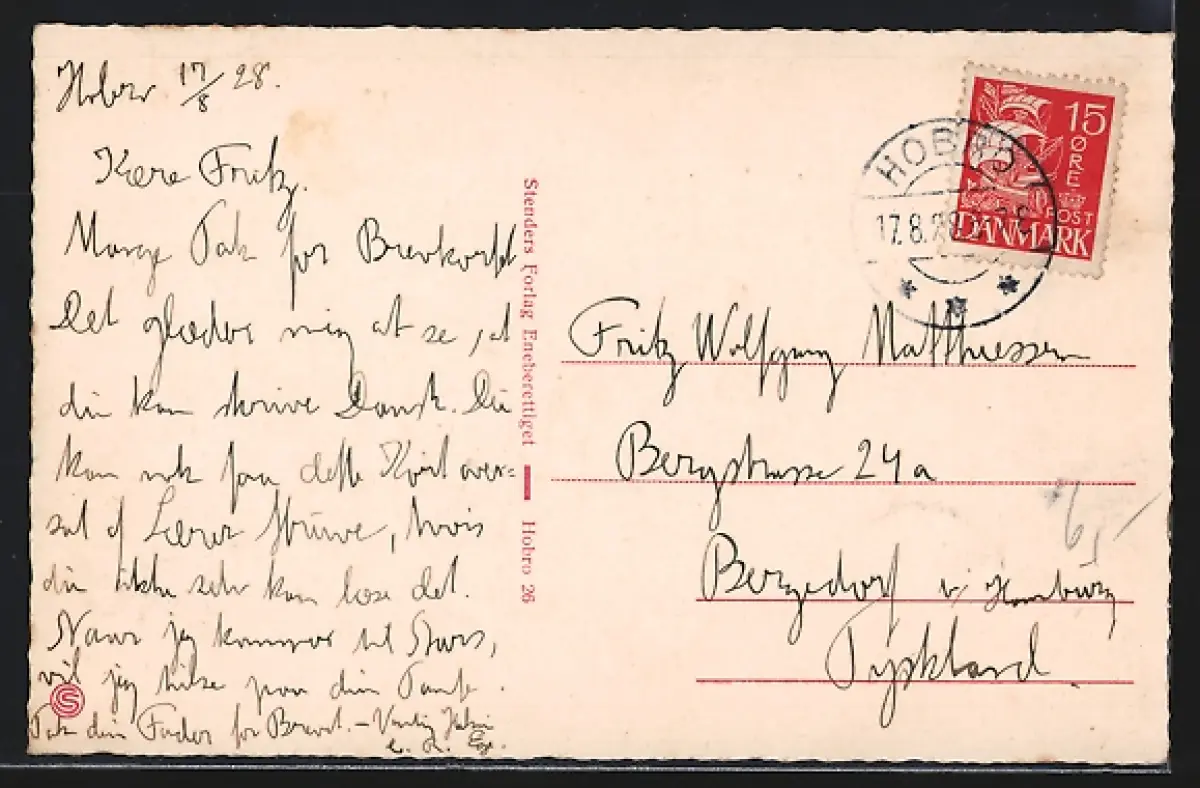 Hobro 17/8 28.
Kære Fritz.
Mange Tak for Brevkortet
Det glæder mig at se, at
du kan skrive Dansk. Du
kan nok faa dette Kort over=
sat af Lærer Strüwe, hvis
du ikke selv kan læse det.
Naar jeg kommer til
vil jeg hilse paa din Tante.
Tak din Fader for Brevet. - Venlig Hilsen
Stenders Forlag Eneberettiget
Hobro 26
S
15
ØRE
POST
DANMARK
HOBRO
17.8.28
Fritz Wolfgang Matthiessen
Bergstrasse 24a
Bergedorf v/ Hamburg
Tyskland.
6,-